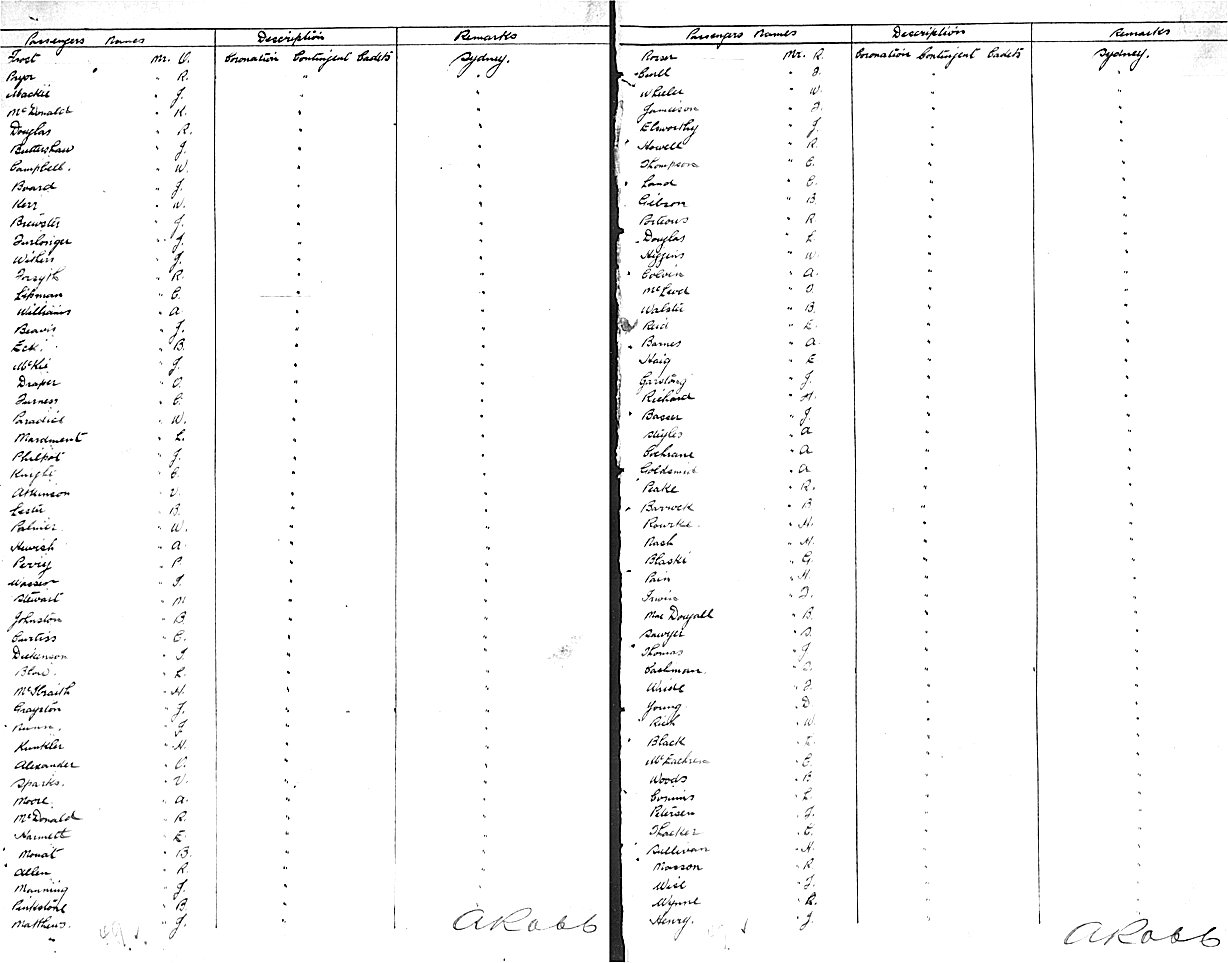 Passengers Names Description Remarks
Frost Mr. C. Coronation Contingent Cadets Sydney.
Pryor " R. " "
Mackie " J. " "
McDonald " K. " "
Douglas " R. " "
Buttershaw " J. " "
Campbell. " W. " "
Board " J. " "
Kerr " W. " "
Brewster " J. " "
Furlonger " J. " "
Withers " J. " "
Forsyth " R. " "
Lipman " C. "
Williams " A. " "
Beavis " J. " "
Eck. " B. " "
McKie " J. " "
Draper " O. " "
Furness " C. " "
Paradice " W. " "
Mardment " L. " "
Philpot " J. " "
Knight " C. " "
Atkinson " V. " "
Lester " B. " "
Palmer " W. " "
Hewish " A. " "
Perry " P. " "
Wasser " J. " "
Stewart " M. " "
Johnston " B. " "
Curtiss " C. " "
Dickenson " J. " "
Blow. " L. " "
McIlraith " H. " "
Grayston " J. " "
" J. " "
Kunkler " H. " "
Alexander " C. " "
Sparks. " V. " "
Moore. " A. " "
McDonald " R. " "
Hammett " E. " "
Mouat " B. " "
Allen " R. " "
Manning " J. " "
Pinkstone " B. " "
Matthews. " J. " "
49.
A Robb
Passengers Names Description Remarks
Rosser Mr. R. Coronation Contingent Cadets Sydney.
" J. " "
Wheeler " W. " "
Jamieson " J. " "
Elsworthy " J. " "
Howell " R. " "
Thompson " C. " "
Land " C. " "
Gibson " B. " "
Porteous " R. " "
Douglas " L. " "
Higgins " W. " "
Colvin " A. " "
McLeod " O. " "
Walster " B. " "
Reid " L. " "
Barnes " A. " "
Haig " E " "
Garstang " J. " "
Richard " H. " "
Basser " J. " "
Styles " A " "
Cochrane " A " "
Goldsmid " A " "
Peake " R. " "
Barwick " B " "
Rourke. " H. " "
Rash " H. " "
Blaski " G. " "
Pain " H. " "
Irwin " J. " "
MacDougall " B. " "
Sawyer " S. " "
Thomas " J " "
Cashman. " J. " "
" J. " "
Young " D. " "
Rich " W. " "
Black " L. " "
McEachern " C. " "
Woods " B. " "
Comins " L. " "
Petersen " J. " "
Thacker " C. " "
Sullivan " H. " "
Masson " R. " "
Wise " J. " "
Wynne " R. " "
Henry. " J. " "
A Robb